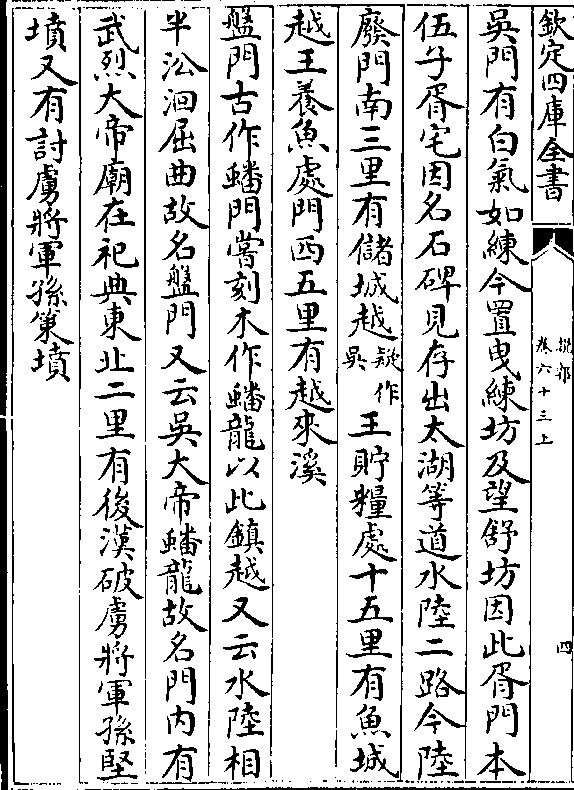 欽定四庫全書
說郛
卷六十三上
四
吳門有白氣如練今置曳練坊及望舒坊因此胥門本
伍子胥宅因名石碑見存出太湖等道水陸二路今陸
廢門南三里有儲城越疑作吳王貯糧處十五里有魚城
越王養魚處門西五里有越來溪
盤門古作蟠門嘗刻木作蟠龍以此鎮越又云水陸相
半沿洄屈曲故名盤門又云吳大帝蟠龍故名門內有
武烈大帝廟在祀典東北二里有後漢破虜將軍孫堅
墳又有討虜將軍孫策墳